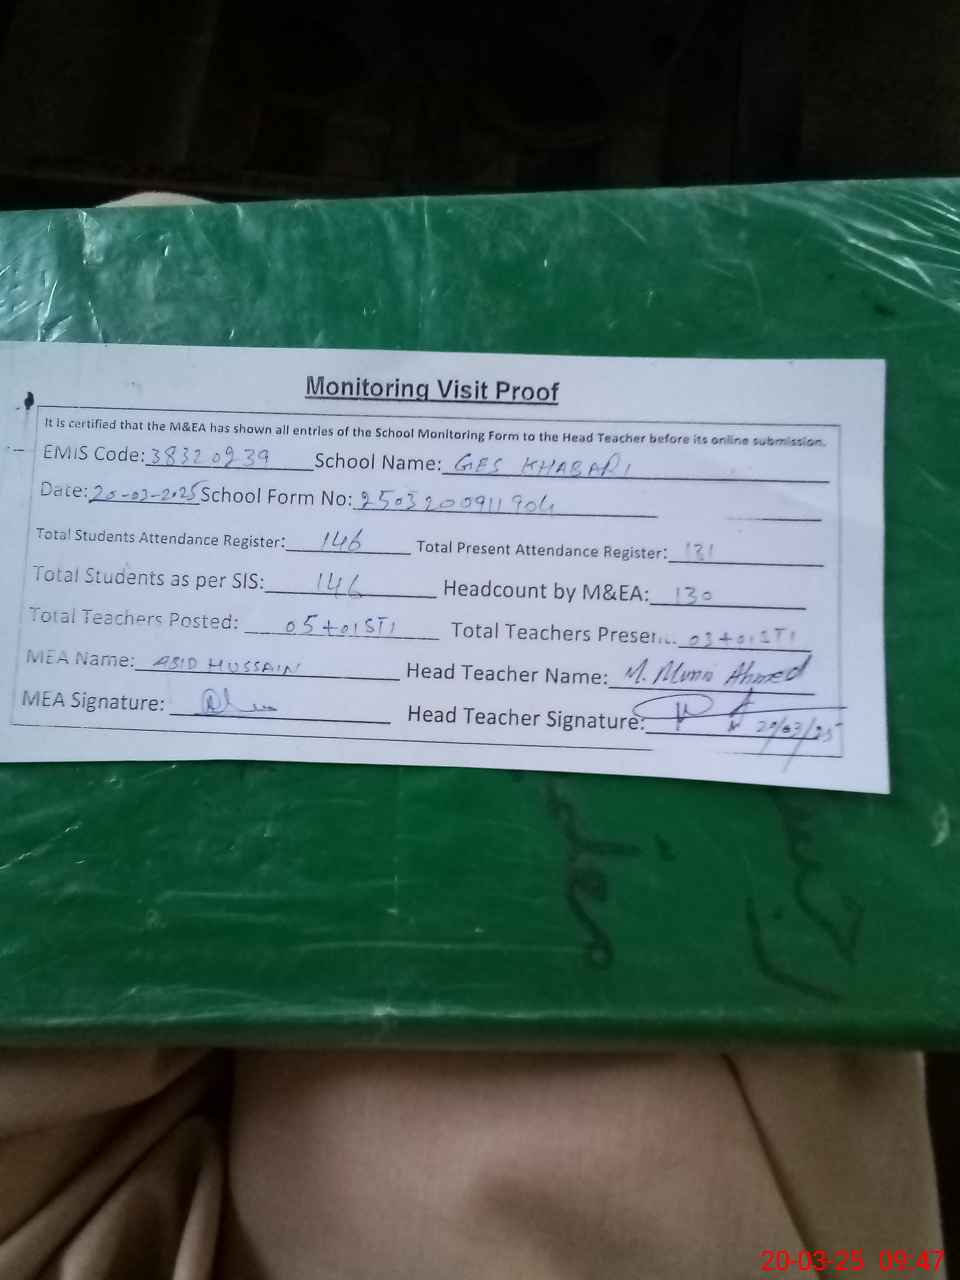 Monitoring Visit Proof
It is certified that the M&EA has shown all entries of the School Monitoring Form to the Head Teacher before its online submission.
EMIS Code: 38320239 School Name: GES KHABARI
Date: 20-03-2025 School Form No: 2503200911904
Total Students Attendance Register: 146 Total Present Attendance Register: 131
Total Students as per SIS: 146 Headcount by M&EA: 130
Total Teachers Posted: 05+01STI Total Teachers Present: 03+01STI
MEA Name: ABID HUSSAIN Head Teacher Name: M. Ahmed
MEA Signature: Head Teacher Signature:
20/03/25
20-03-25 09:47